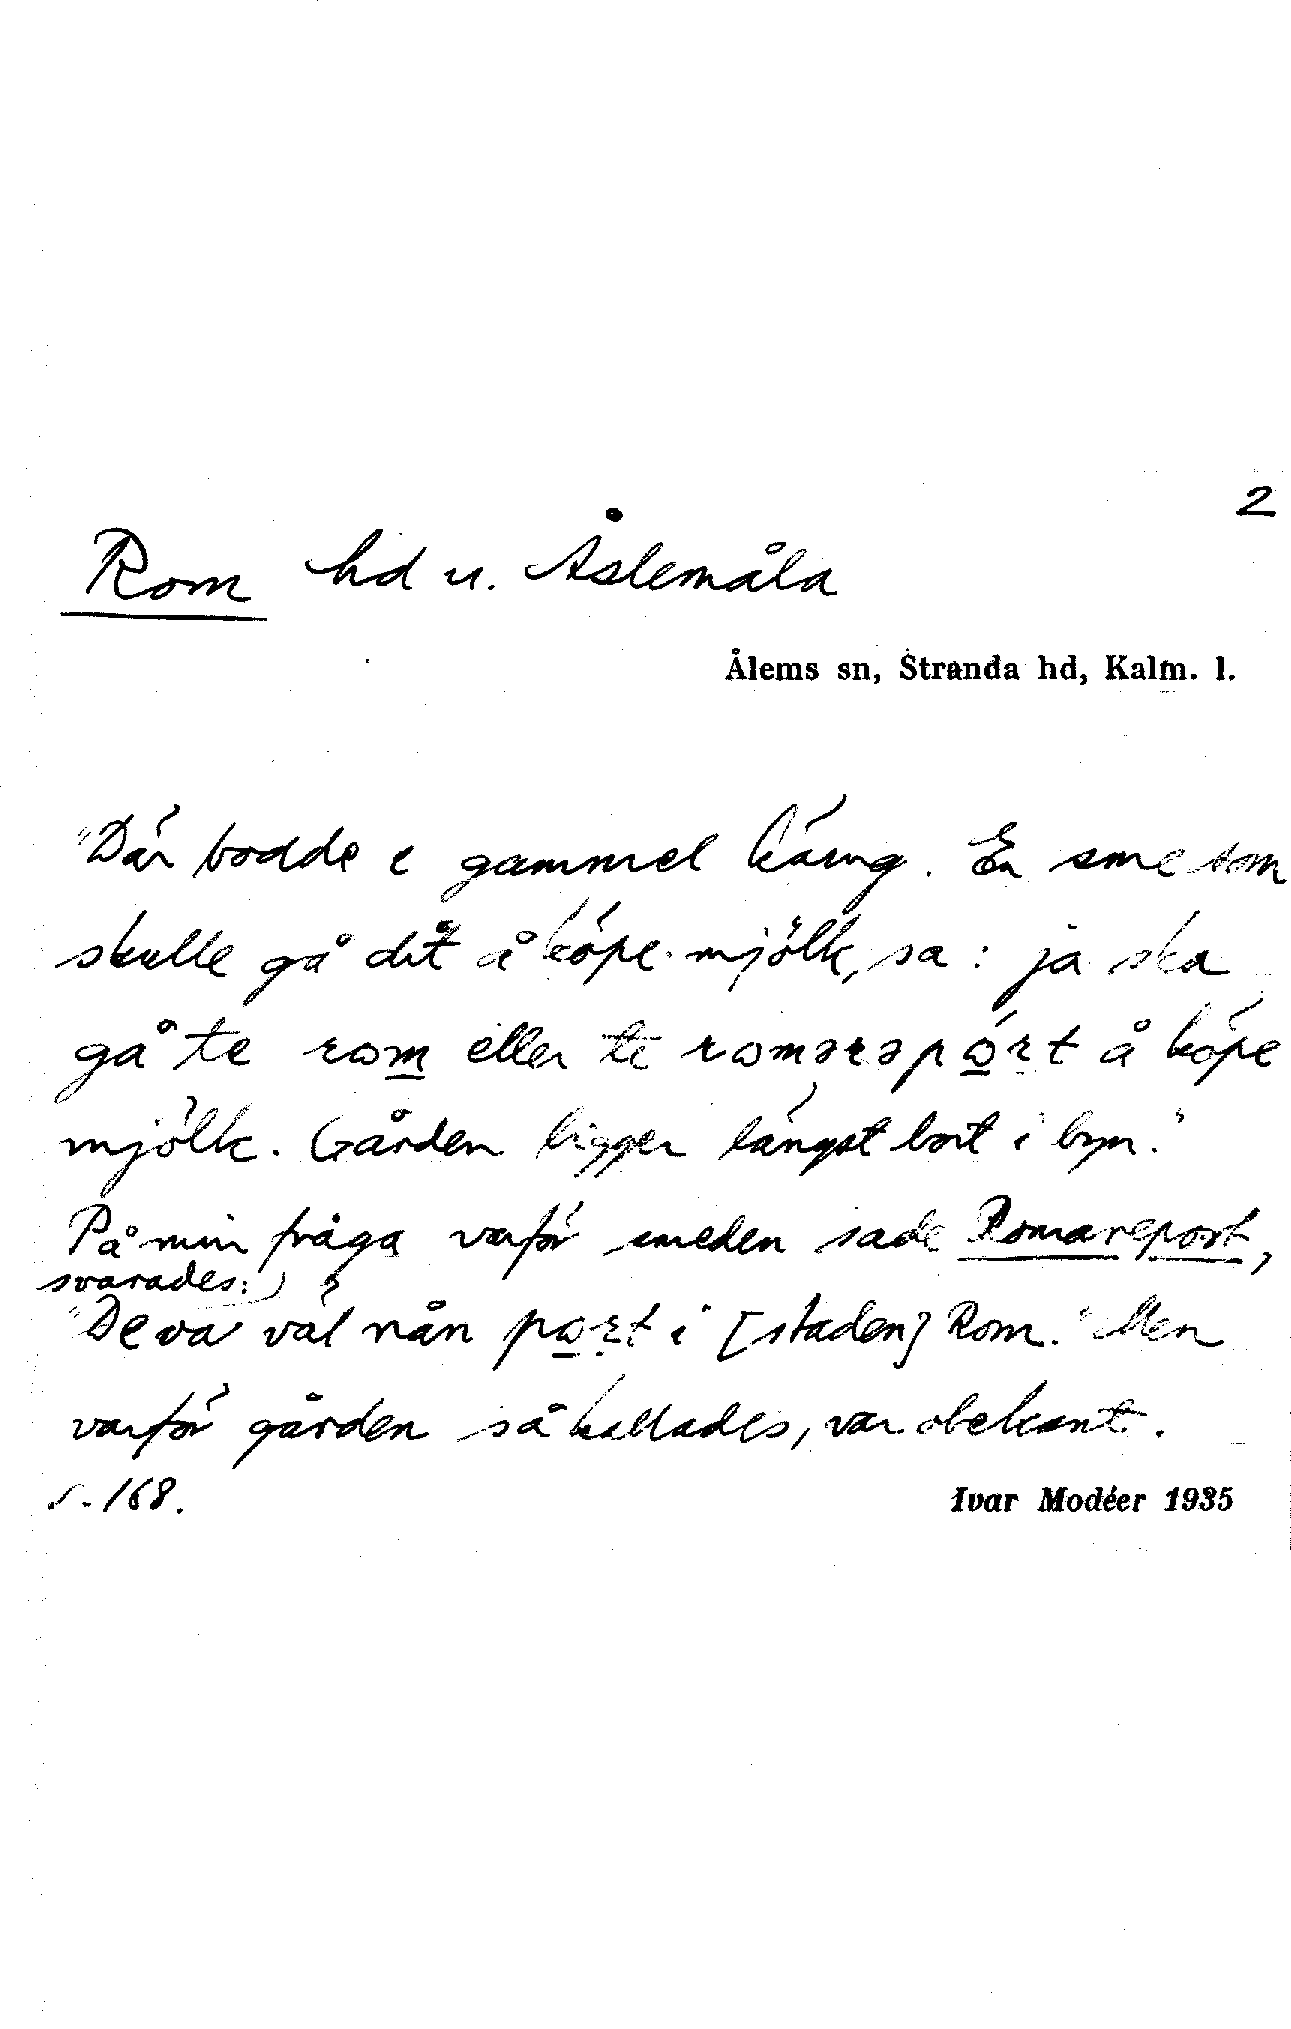 2
Rom hd u. Åslemåla
Ålems sn, Stranda hd, Kalm. l.
"Där bodde e gammel käring. En sme som
skulle gå dit å köpe mjölk, sa: ja ska
gå te rom eller te romarapórt å köpe
mjölk. Gården ligger längst bort i byn."
På min fråga varför smeden sade Romareport,
svarades:
"De va väl nån port i [staden] Rom." Men
varför gården så kallades, var obekant.
s. 168.
Ivar Modéer 1935